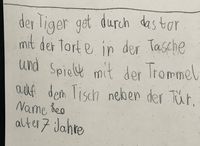 der Tiger get durch das tor
mit der Torte in der Tasche
und spielt mit der Trommel
auf dem Tisch neben der Tür.
Name Leo
alter 7 Jahre